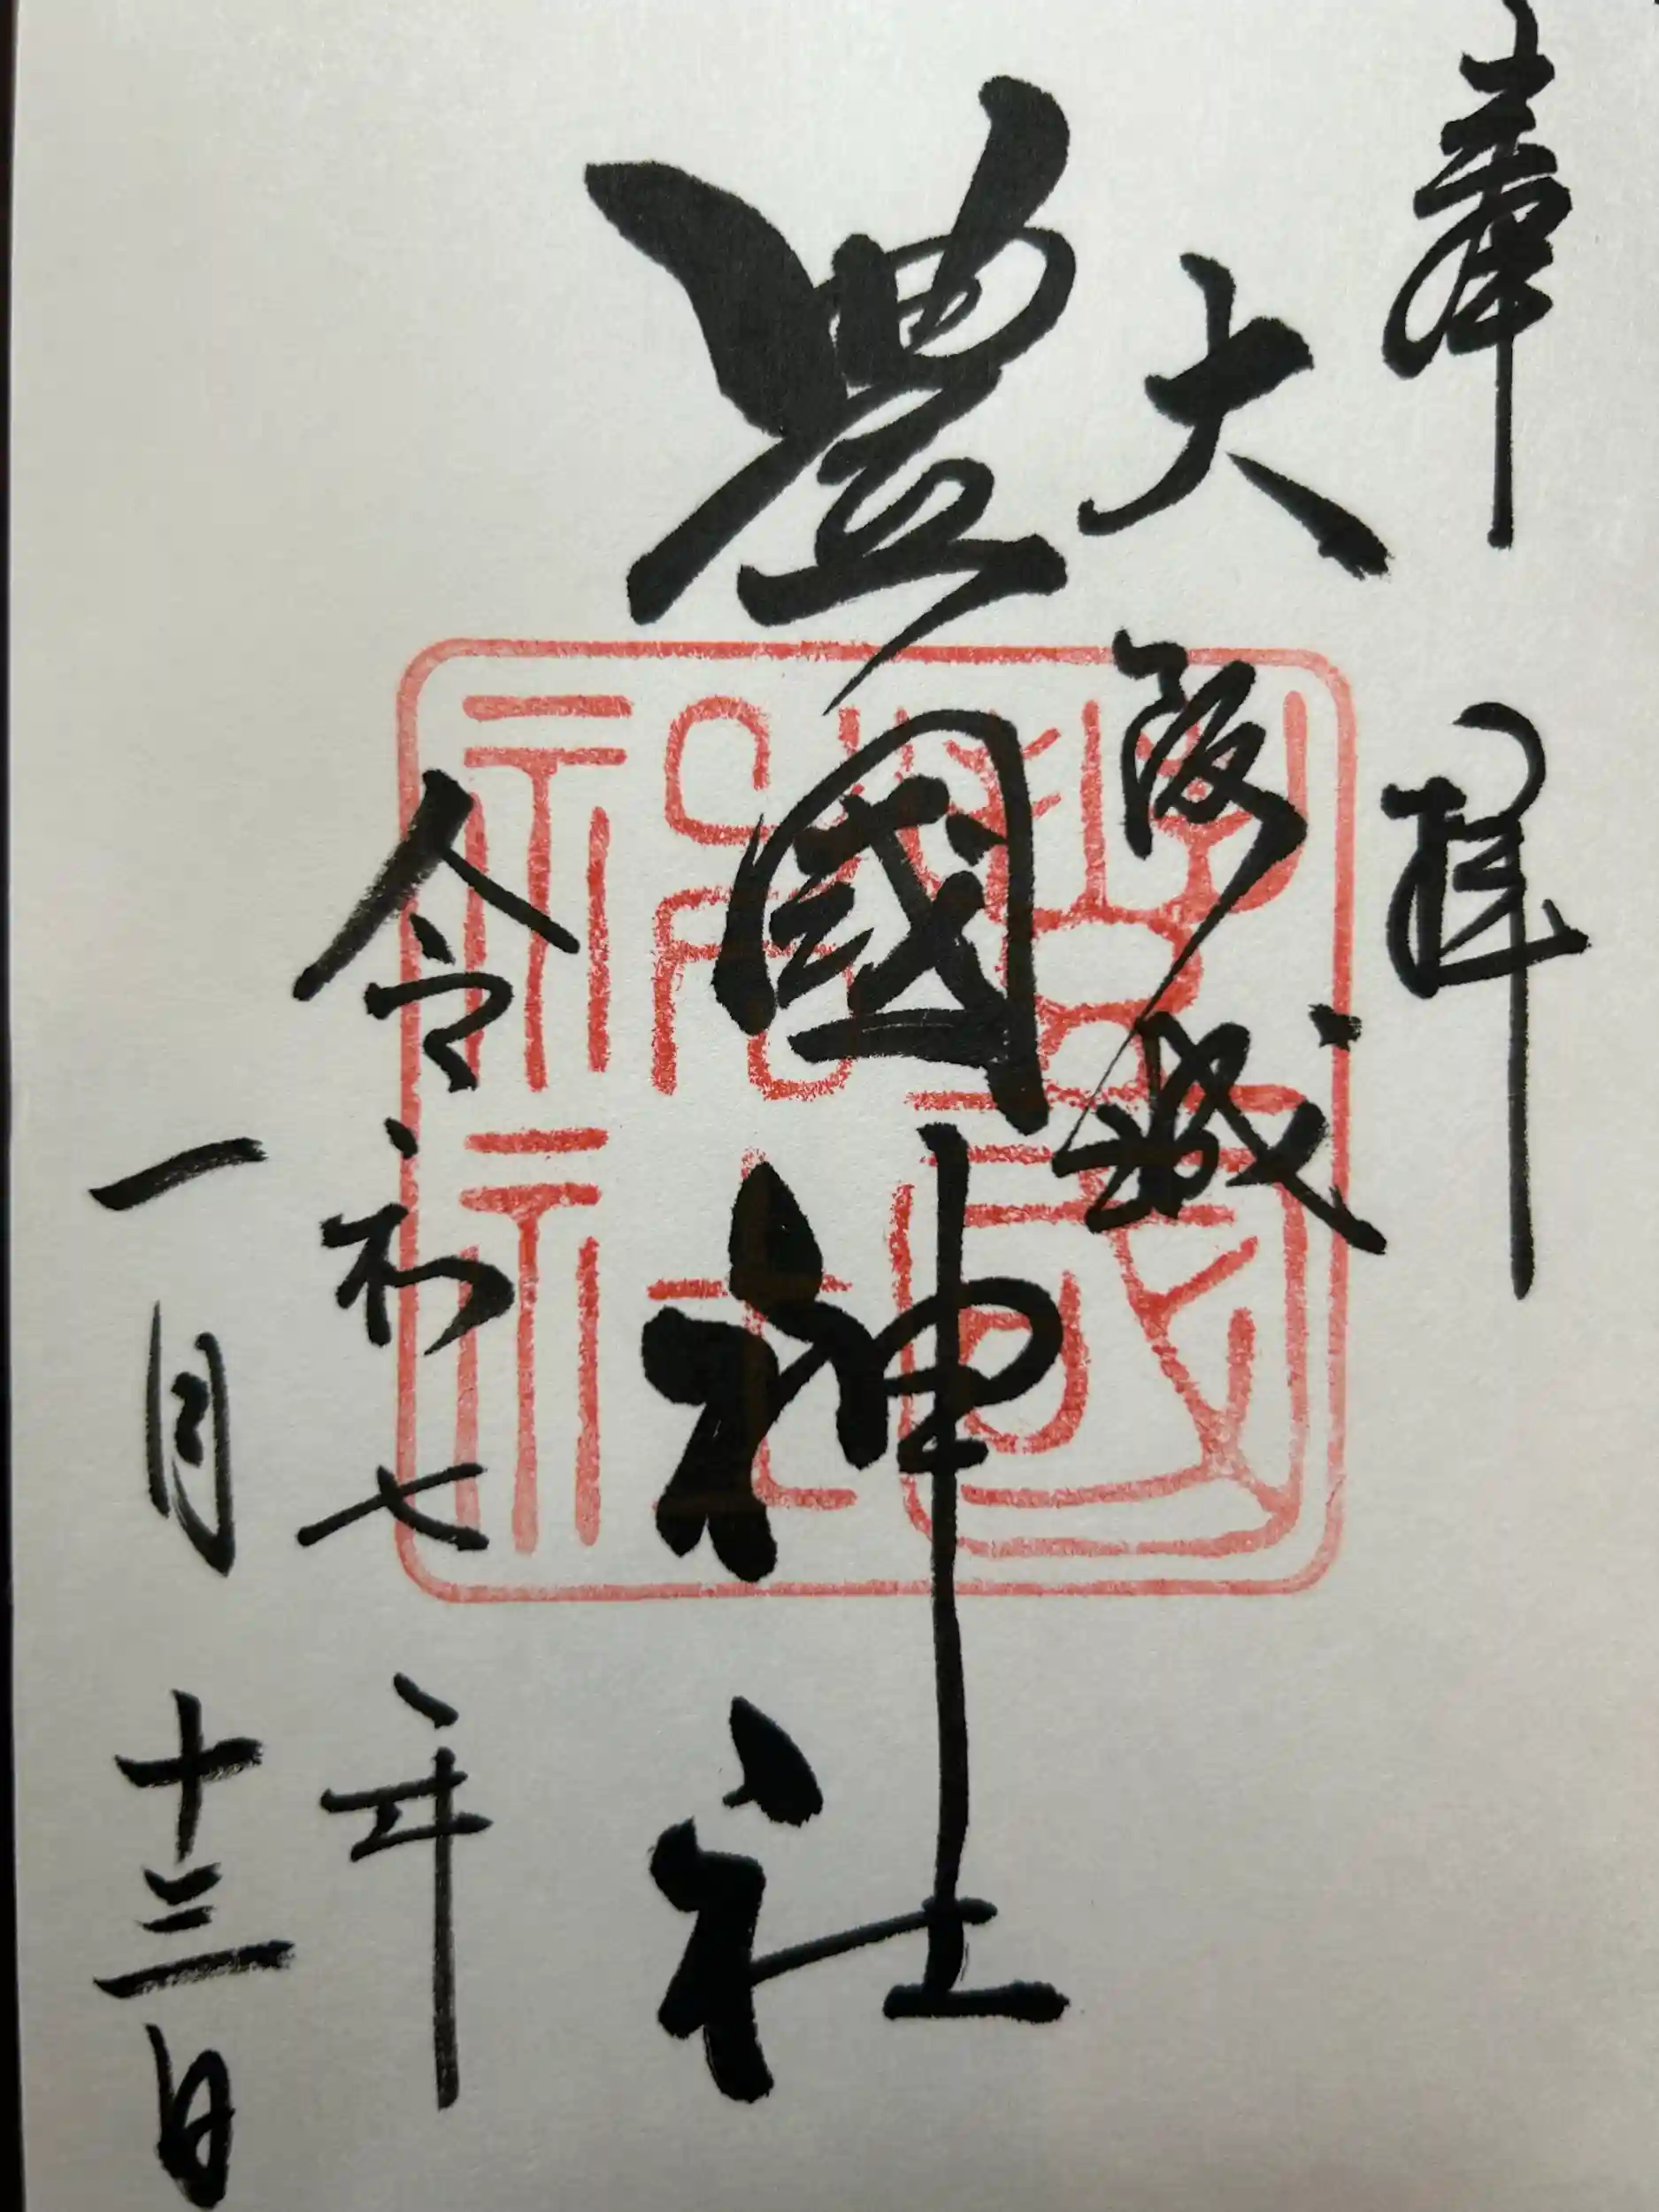 奉拝
大阪城
豊國神社
令和七年
一月十三日
豊國神社